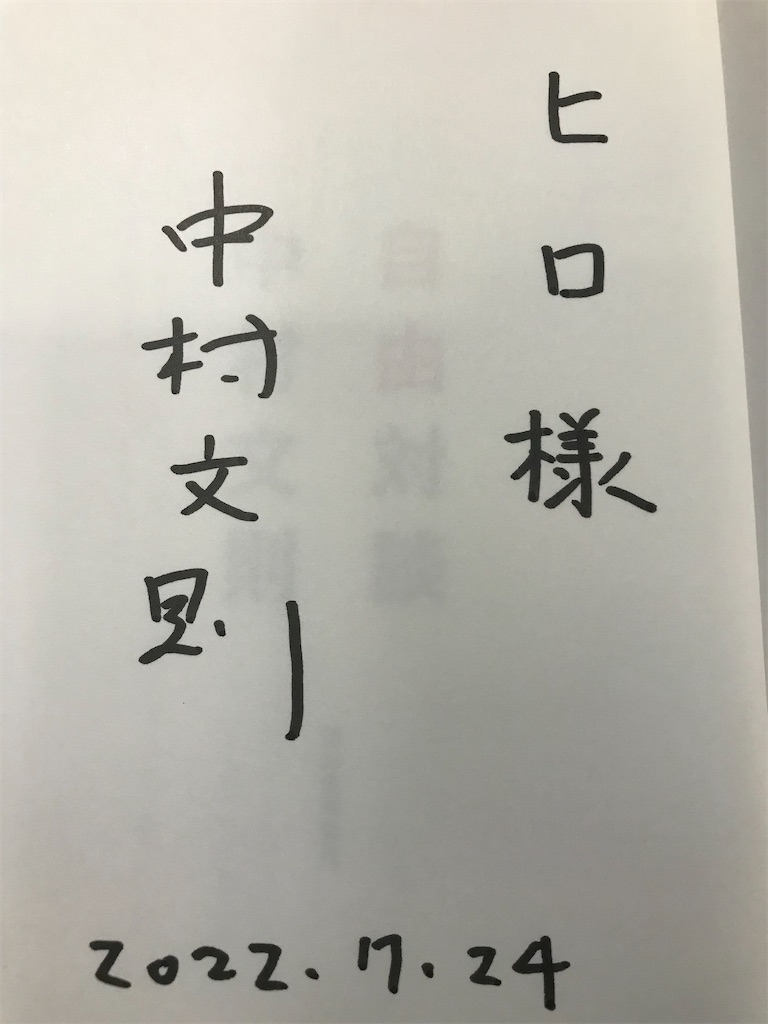 ヒロ様
中村文則
2022.7.24